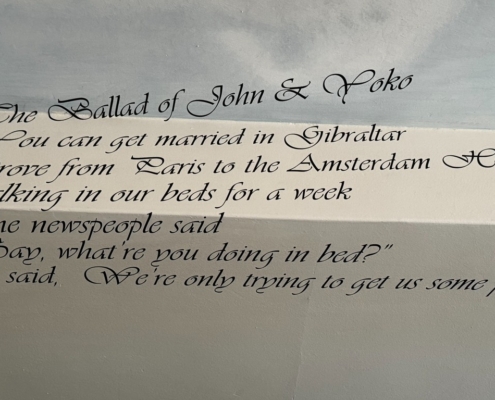 The Ballad of John & Yoko
You can get married in Gibraltar
rove from Paris to the Amsterdam H
lking in our beds for a week
he newspeople said
Say, what're you doing in bed?"
said, We're only trying to get us some